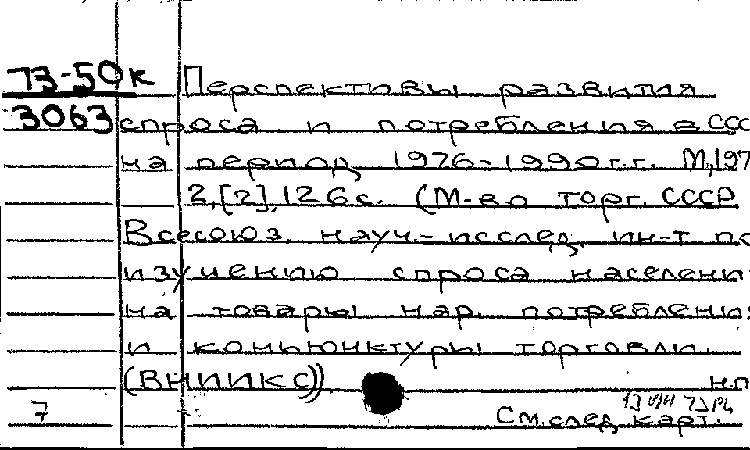 73-50к Перспективы развития
3063 спроса и потребления в ССС
на период 1976-1990 г.г. М,197
2,[2],126с. (М-во торг. СССР
Всесоюз. науч.-исслед. ин-т по
изучению спроса населени
на товары нар. потребления
и конъюнктуры торговли.
(ВНИИКС)) н.п
7 См.след.карт.